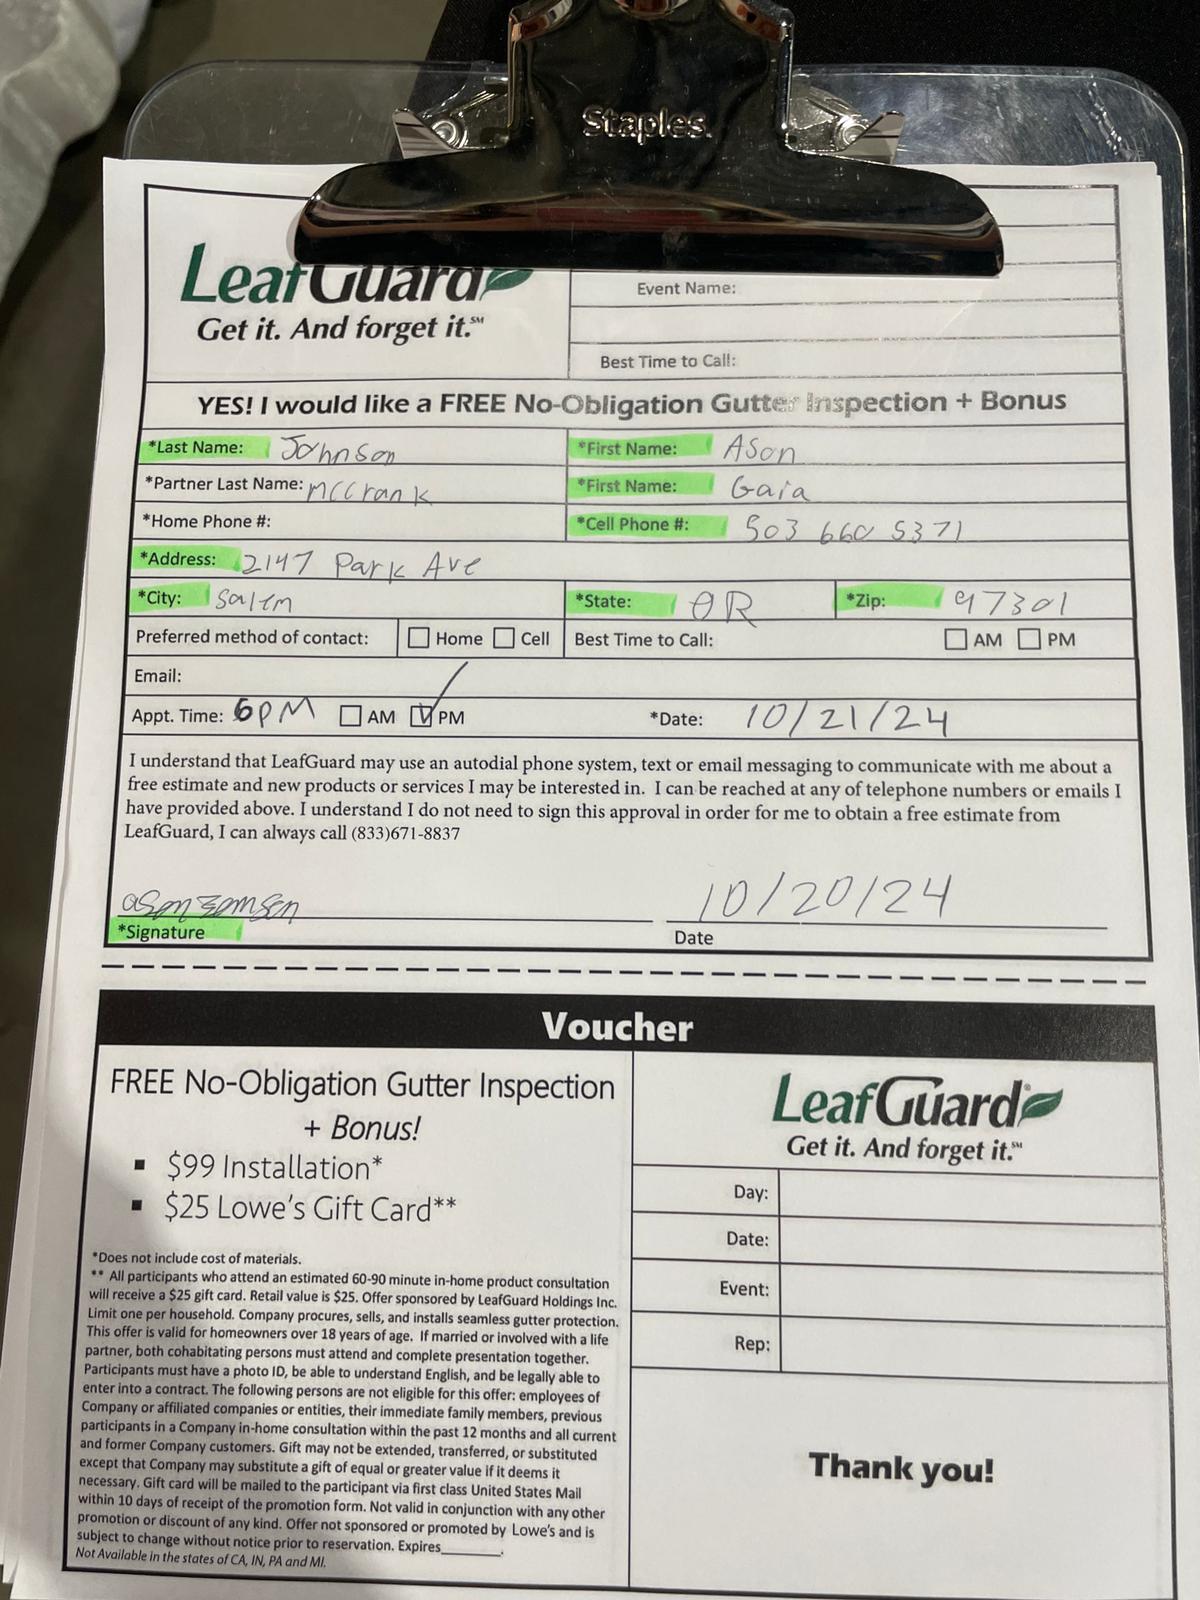 Staples
LeafGuard
Get it. And forget it.℠
Event Name:
Best Time to Call:
YES! I would like a FREE No-Obligation Gutter Inspection + Bonus
*Last Name: Johnson *First Name: Ason
*Partner Last Name: McCrank *First Name: Gaia
*Home Phone #: *Cell Phone #: 503 660 5371
*Address: 2147 Park Ave
*City: Salem *State: OR *Zip: 97301
Preferred method of contact: Home Cell Best Time to Call: AM PM
Email:
Appt. Time: 6PM AM PM *Date: 10/21/24
I understand that LeafGuard may use an autodial phone system, text or email messaging to communicate with me about a
free estimate and new products or services I may be interested in. I can be reached at any of telephone numbers or emails I
have provided above. I understand I do not need to sign this approval in order for me to obtain a free estimate from
LeafGuard, I can always call (833)671-8837
10/20/24
*Signature Date
Voucher
FREE No-Obligation Gutter Inspection
+ Bonus!
▪ $99 Installation*
▪ $25 Lowe's Gift Card**
*Does not include cost of materials.
** All participants who attend an estimated 60-90 minute in-home product consultation
will receive a $25 gift card. Retail value is $25. Offer sponsored by LeafGuard Holdings Inc.
Limit one per household. Company procures, sells, and installs seamless gutter protection.
This offer is valid for homeowners over 18 years of age. If married or involved with a life
partner, both cohabitating persons must attend and complete presentation together.
Participants must have a photo ID, be able to understand English, and be legally able to
enter into a contract. The following persons are not eligible for this offer: employees of
Company or affiliated companies or entities, their immediate family members, previous
participants in a Company in-home consultation within the past 12 months and all current
and former Company customers. Gift may not be extended, transferred, or substituted
except that Company may substitute a gift of equal or greater value if it deems it
necessary. Gift card will be mailed to the participant via first class United States Mail
within 10 days of receipt of the promotion form. Not valid in conjunction with any other
promotion or discount of any kind. Offer not sponsored or promoted by Lowe's and is
subject to change without notice prior to reservation. Expires________.
Not Available in the states of CA, IN, PA and MI.
LeafGuard®
Get it. And forget it.℠
Day:
Date:
Event:
Rep:
Thank you!